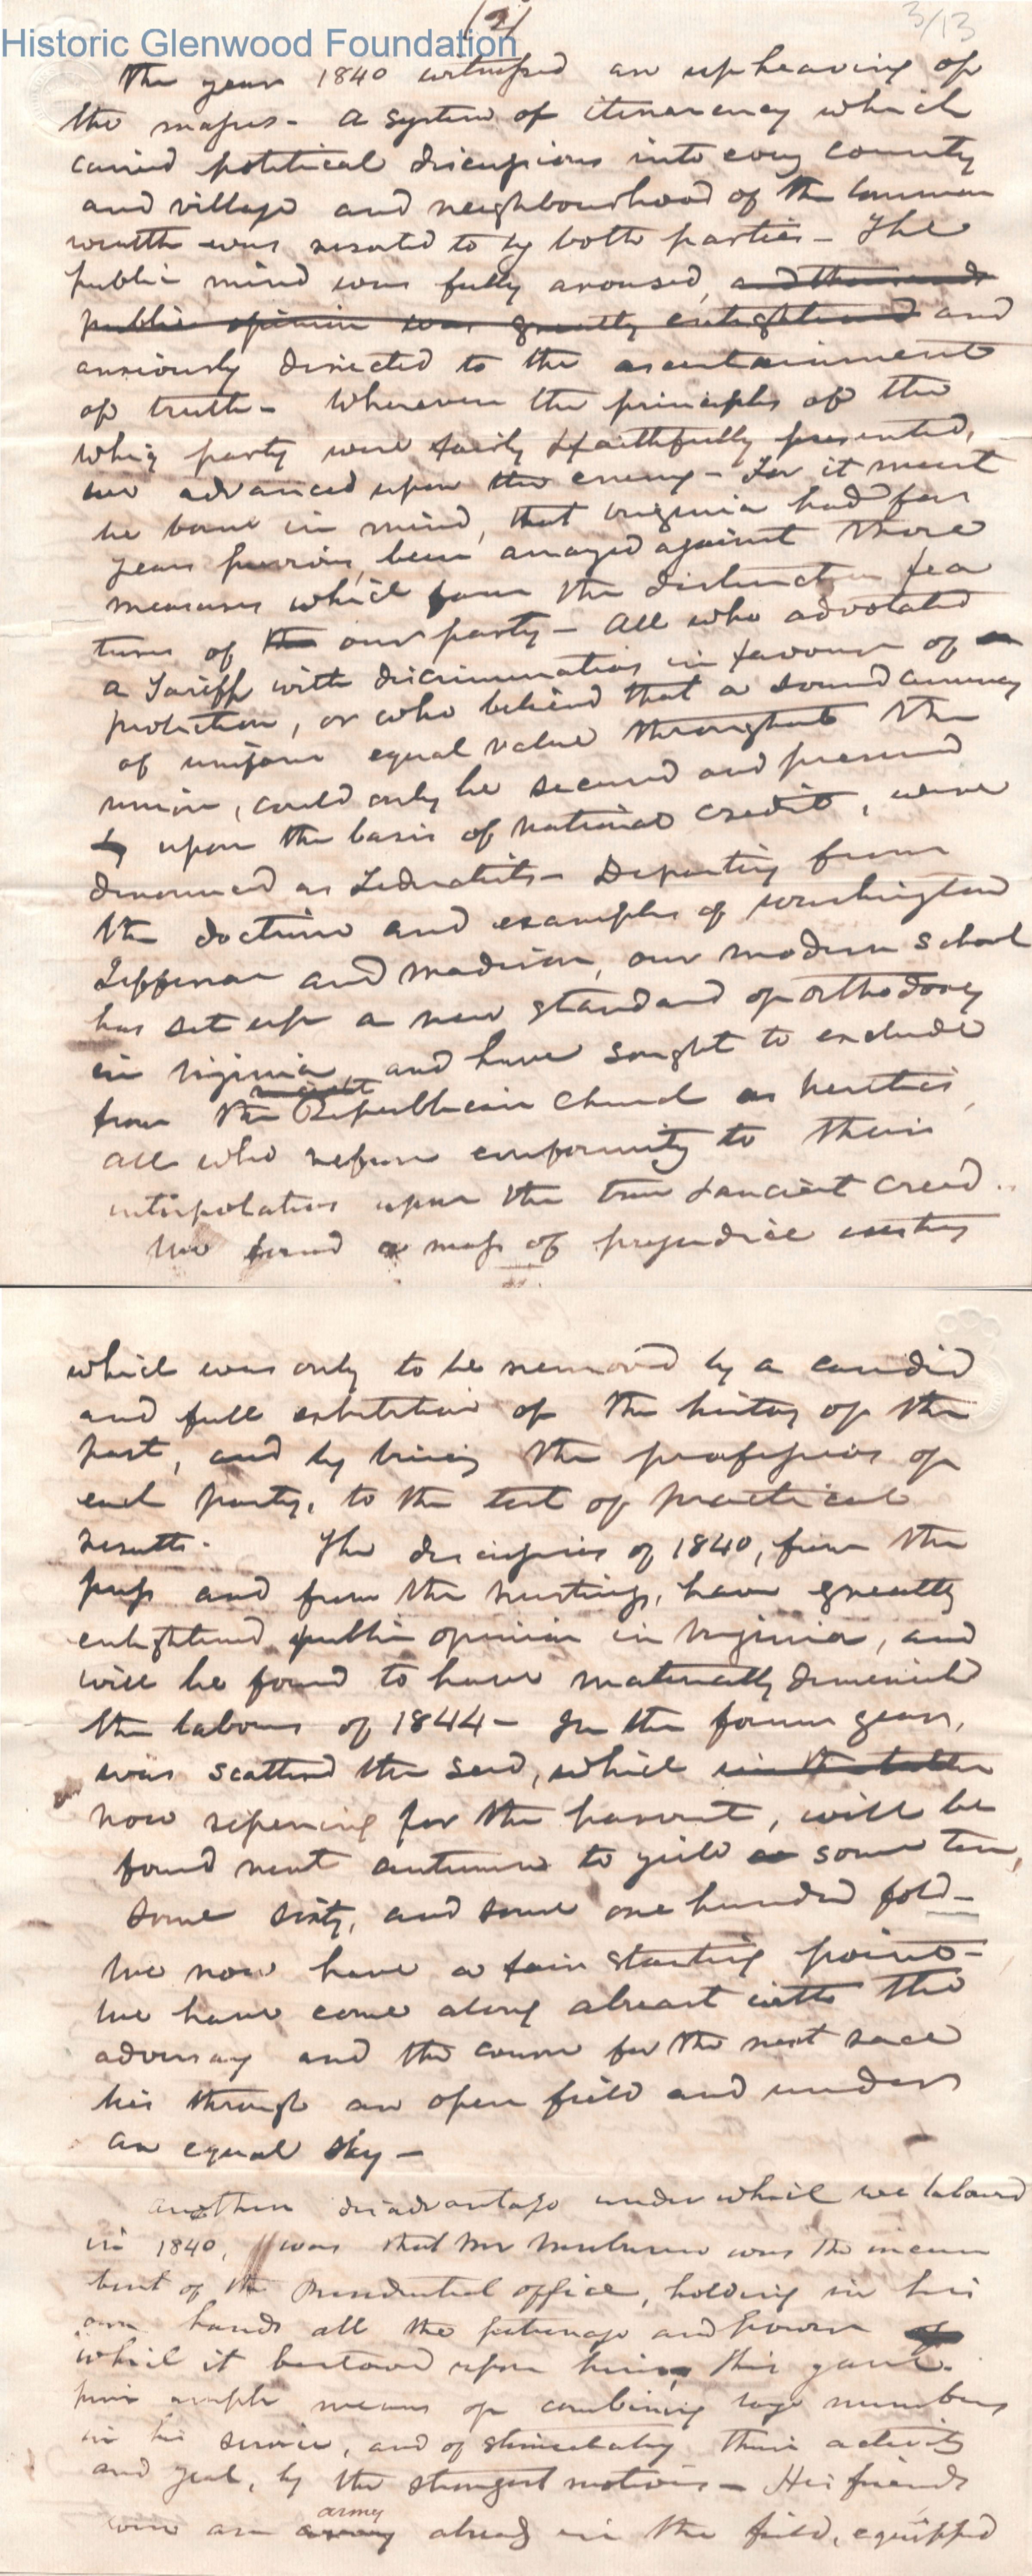 (2)
3/13
Historic Glenwood Foundation
The year 1840 witnessed an upheaving of
the masses - A system of itinerancy which
carried political discussions into every county
and village and neighbourhood of the common
wealth was resorted to by both parties - The
public mind was fully aroused, and the
public opinion was greatly enlightened and
anxiously directed to the ascertainment
of truth - Wherever the principles of the
Whig party were fairly & faithfully presented,
we advanced upon the enemy - For it must
be borne in mind, that Virginia had for
years previous been arrayed against those
measures which form the distinctive fea
tures of the our party - All who advocated
a Tariff with discrimination in favour of
protection, or who believed that a sound currency
of uniform equal value throughout the
union, could only be secured and preserved
by upon the basis of national credit, were
denounced as Federalists - Departing from
the doctrine and examples of Washington
Jefferson and Madison, our modern school
has set up a new standard of orthodoxy
in Virginia, and have sought to exclude
from the Republican Church as heretics,
all who refuse conformity to their
interpolations upon the true & ancient creed.
We found a mass of prejudice existing
which was only to be removed by a candid
and full exhibition of the history of the
past, and by bring the professions of
each party, to the test of practical
results. The discussions of 1840, from the
press and from the hustings, have greatly
enlightened public opinion in Virginia, and
will be found to have materially diminished
the labours of 1844 - In the former year,
was scattered the seed, which in the latter
now ripening for the harvest, will be
found next autumn to yield some ten,
some sixty, and some one hundred fold -
We now have a fair starting point -
We have come along abreast with the
adversary and the course for the next race
lies through an open field and under
an equal sky -
Another disadvantage under which we labored
in 1840, was that Mr Van Buren was the incum
bent of the Presidential office, holding in his
own hands all the patronage and power of
which it bestowed upon him, this gave
him ample means of combining large numbers
in his service, and of stimulating their activity
and zeal, by the strongest motives - His friends
army
were an army already in the field, equipped